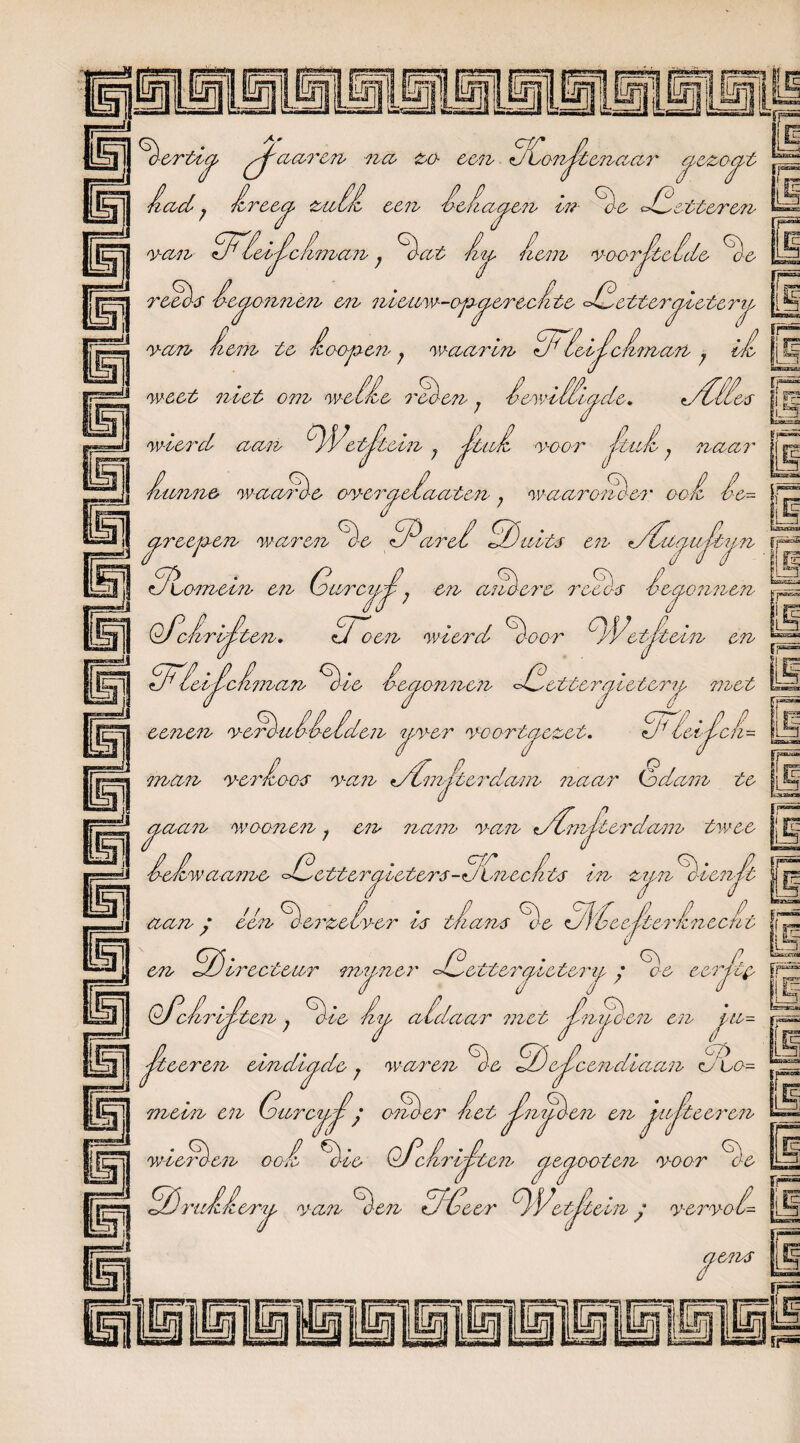 dertig Jaaren na zo een Konſtenaar gezogt
had, kreeg zulk een behagen in de Letteren
van Fleiſchman, dat hy hem voorſtelde de
reeds begonnen en nieuw-opgerechte Lettergietery
van hem te koopen, waarin Fleiſchman, ik
weet niet om welke reden, bewilligde. Alles
wierd aan Wetſtein, ſtuk voor ſtuk, naar
hunne waarde overgelaaten, waaronder ook be=
greepen waren de Parel Duits en Auguſtyn
Romein en Curcyſ, en andere reeds begonnen
Schriften. Toen wierd door Wetſtein en
Fleiſchman die begonnen Lettergietery met
eenen verdubbelden yver voortgezet. Fleiſch=
man verkoos van Amſterdam naar Edam te
gaan woonen, en nam van Amſterdam twee
bekwaame Lettergieters-Knechts in zyn dienſt
aan; één derzelver is thans de Meeſterknecht
en Directeur myner Lettergietery; de eerſte
Schriften, die hy aldaar met ſnyden en ju=
ſteeren eindigde, waren de Deſcendiaan Ro=
mein en Curcyſ; onder het ſnyden en juſteeren
wierden ook die Schriften gegooten voor de
Drukkery van den Heer Wetſtein; vervol=
gens